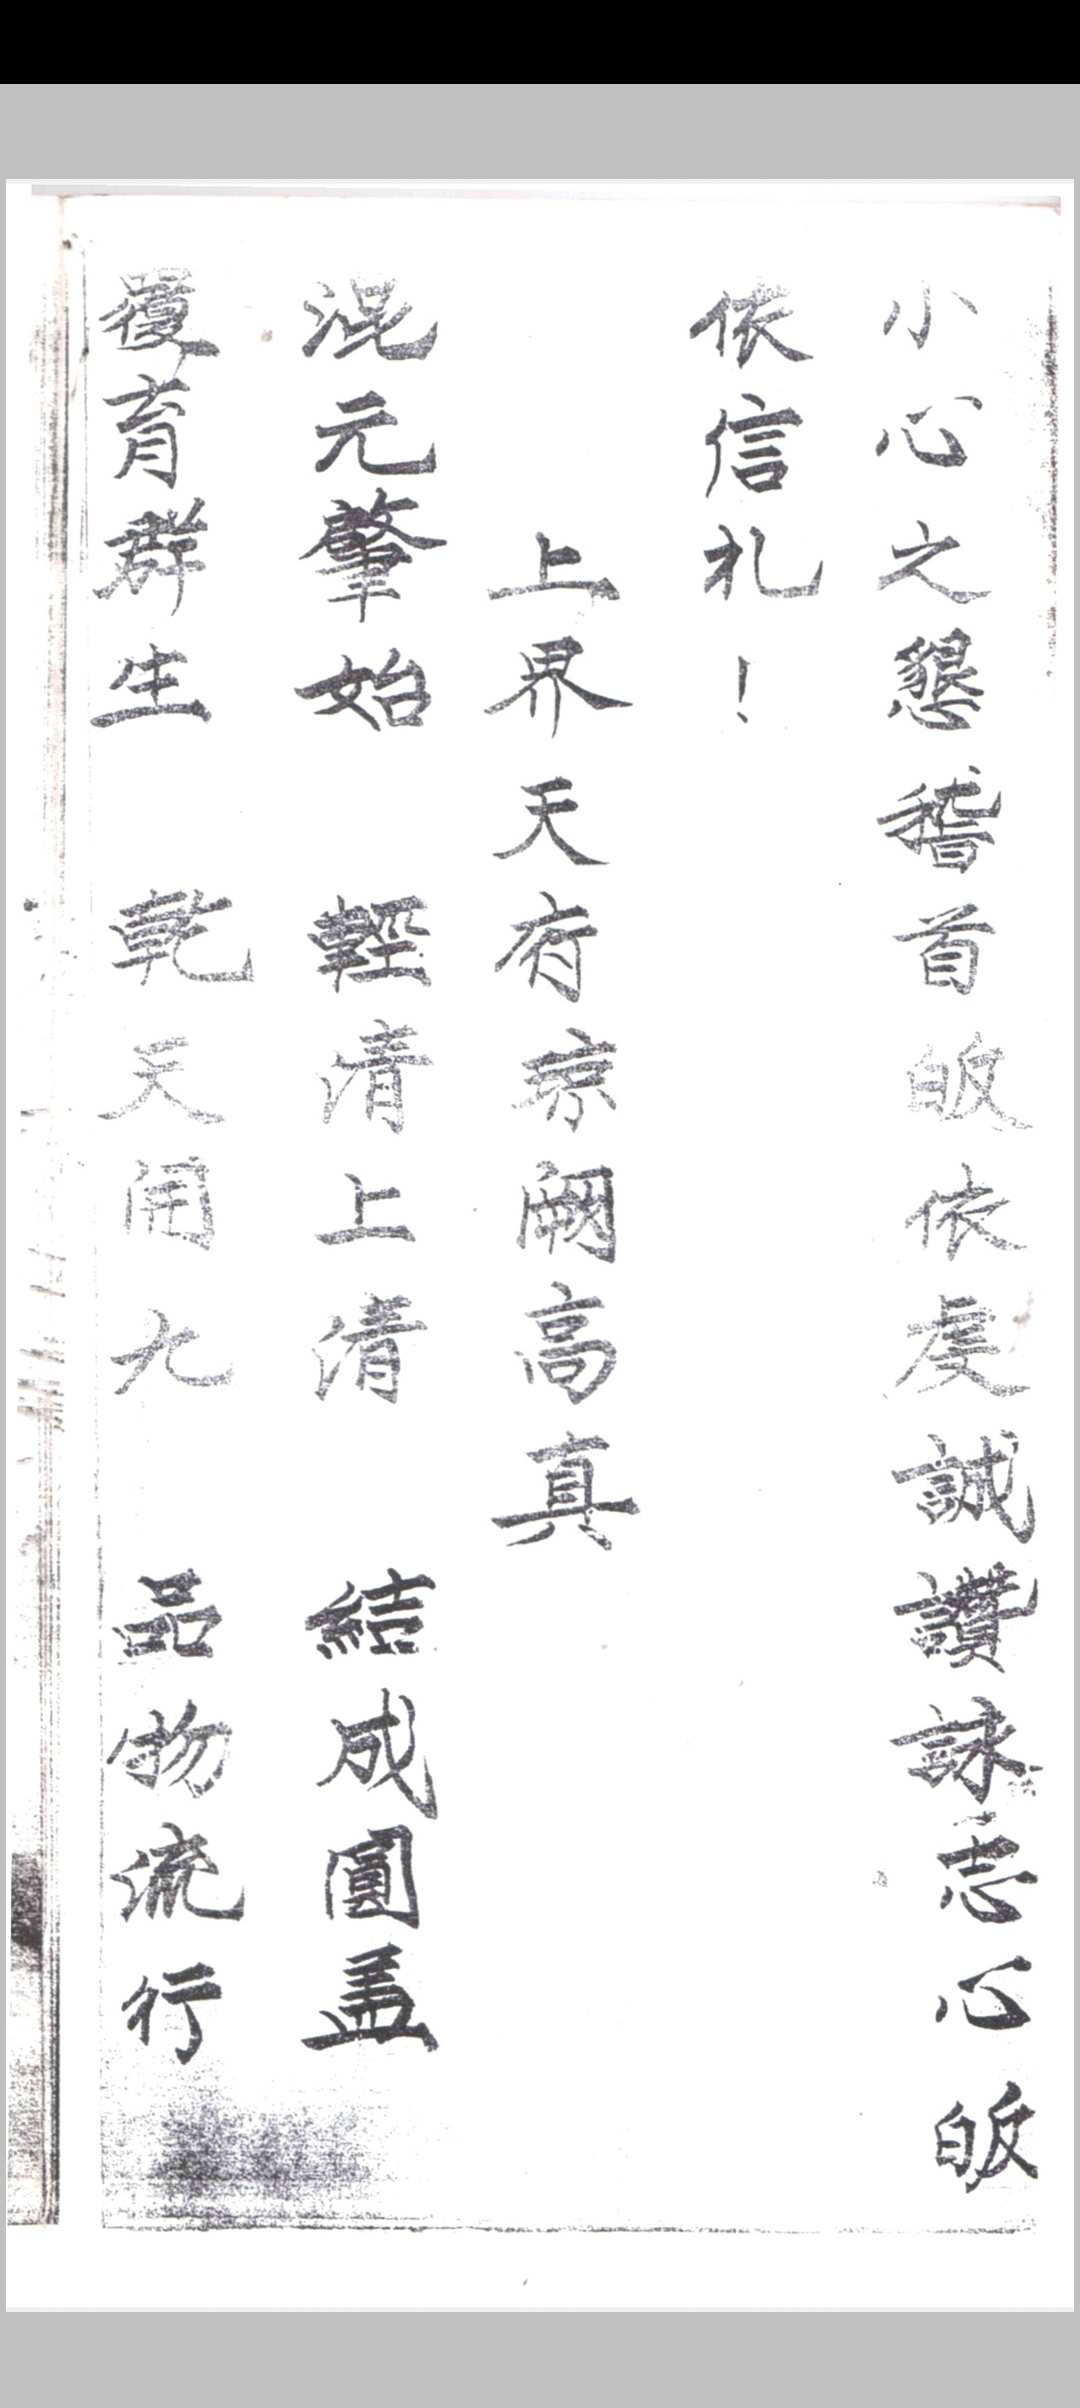 小心之懇稽首皈依虔誠讚詠志心皈
依信札!
上界天府京闕高真
混元肇始 輕清上清 結成圓盖
覆育群生 乾天用九 品物流行